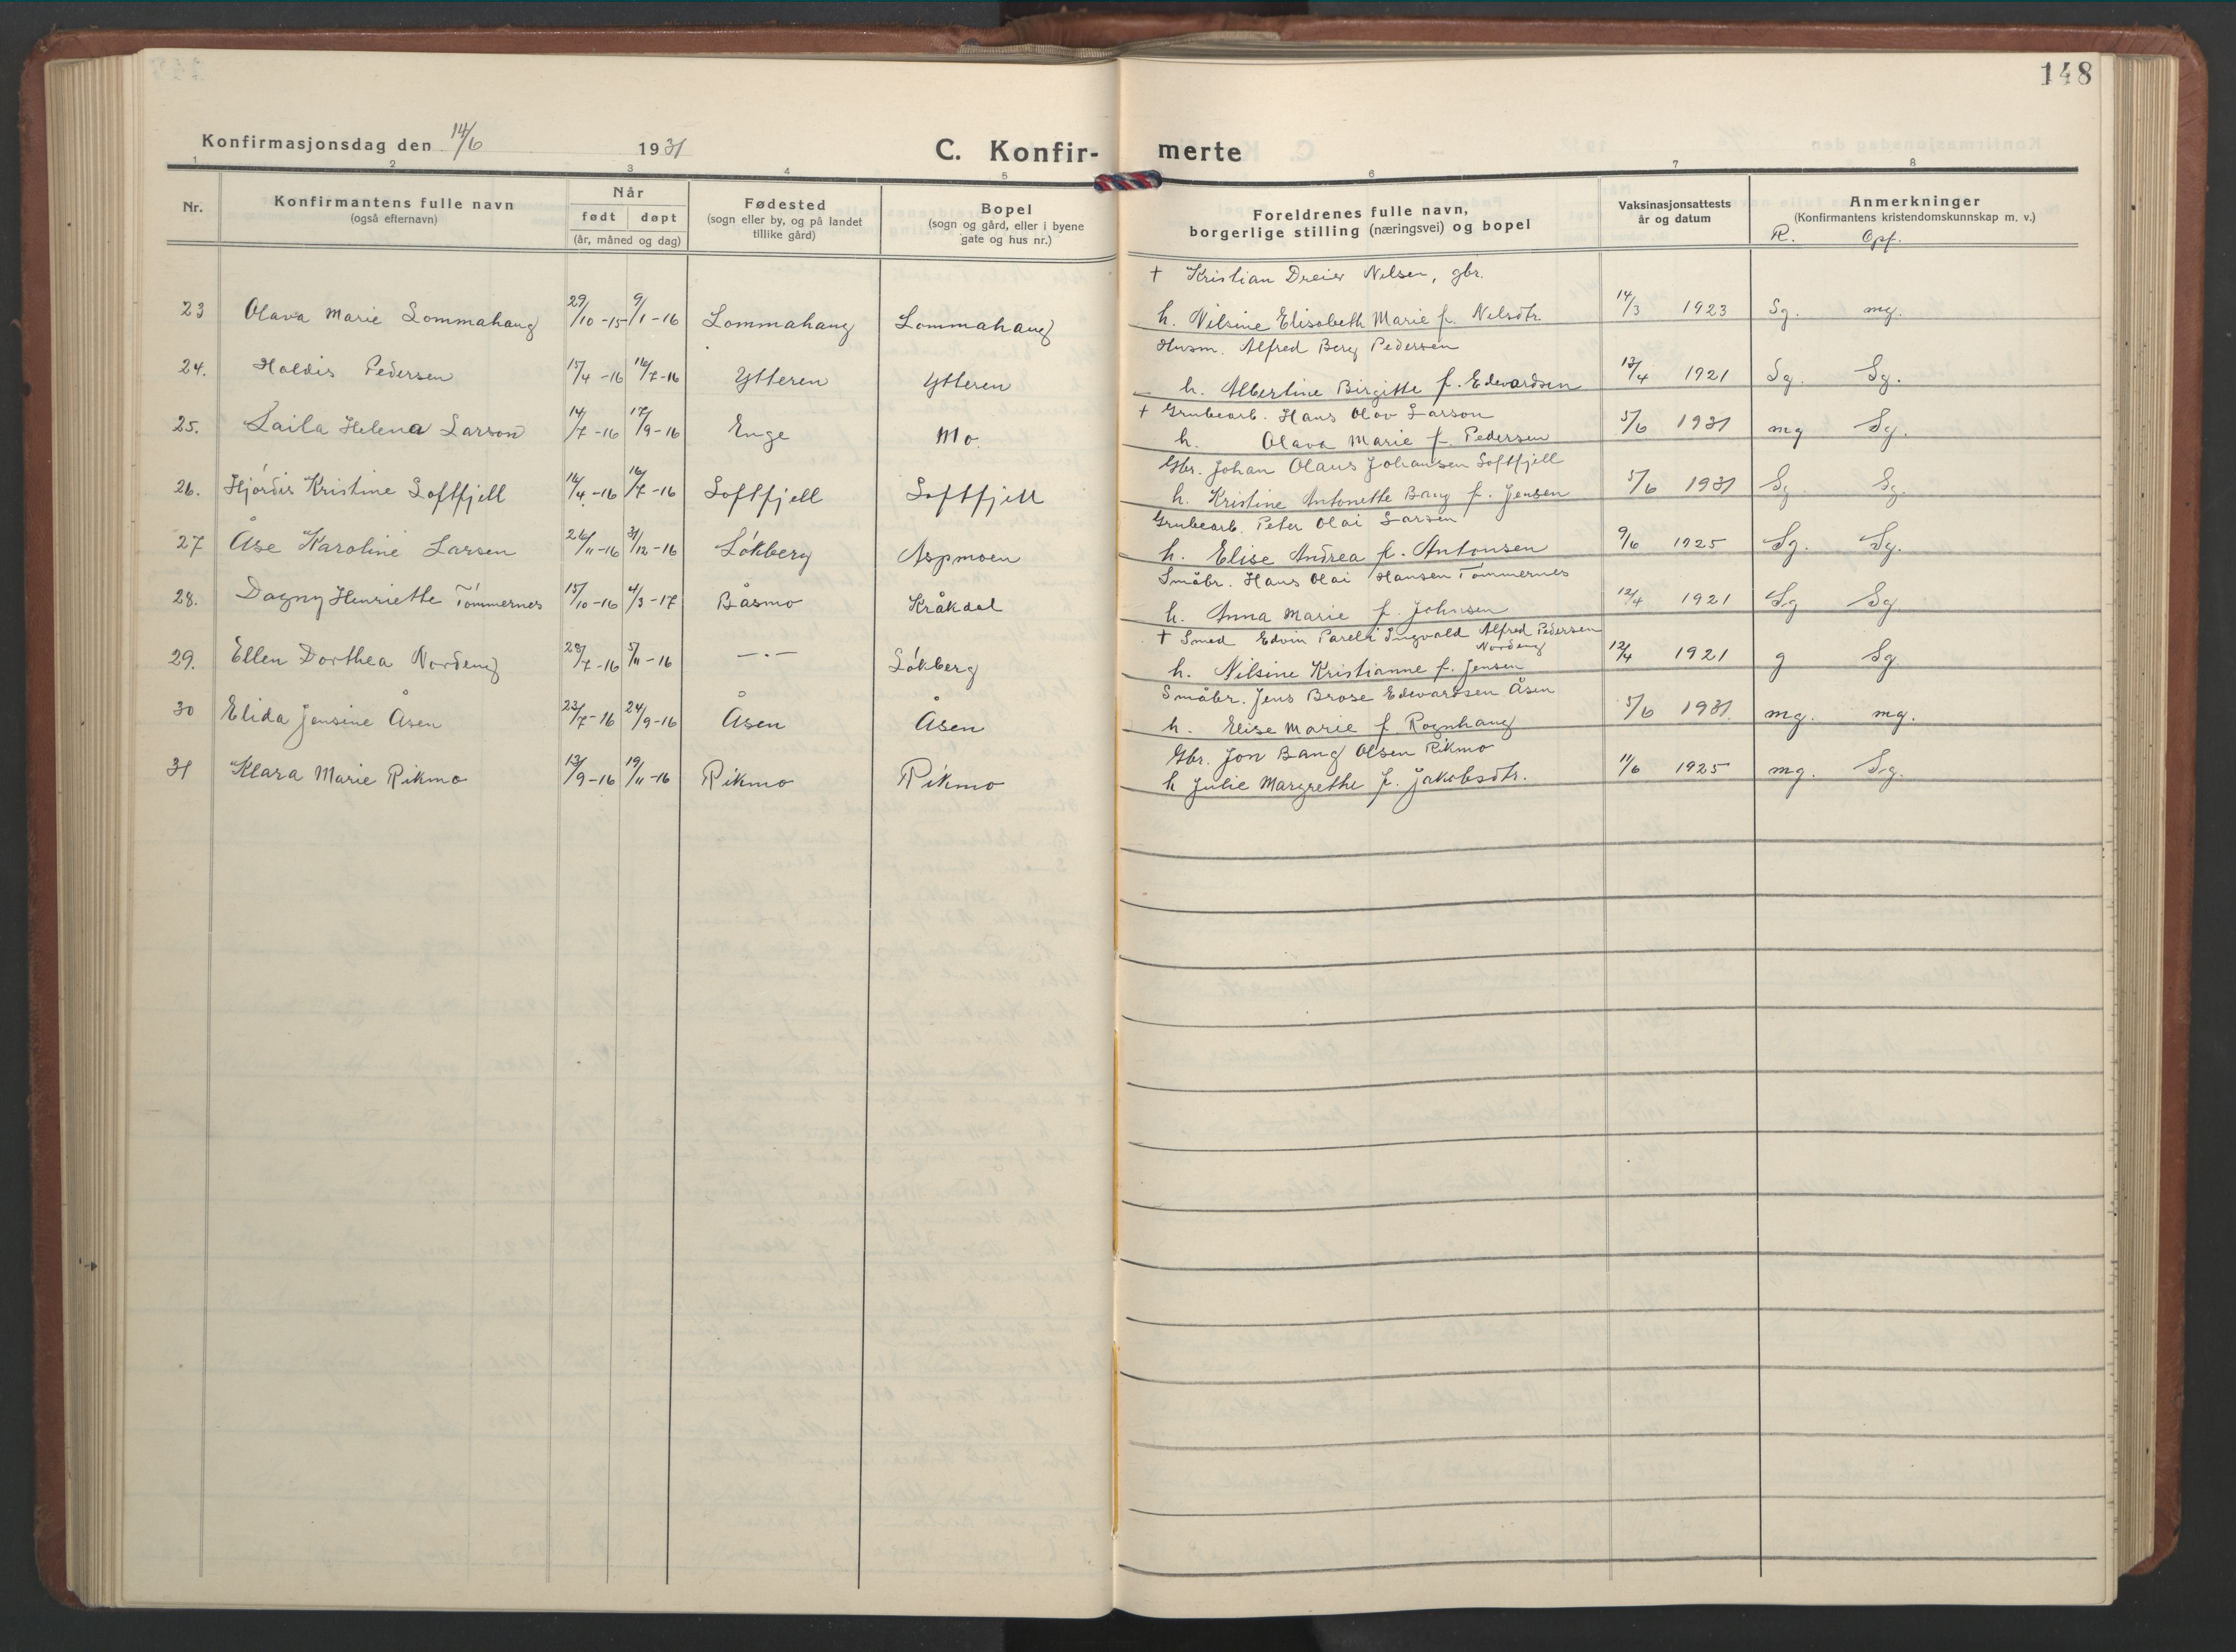 148
Konfirmasjonsdag den 14/6 1931
C. Konfir- merte
1 2 3 4 5 6 7 8
Nr.
Konfirmantens fulle navn
(også efternavn)
Når
født døpt
(år, måned og dag)
Fødested
(sogn eller by, og på landet
tillike gård)
Bopel
(sogn og gård, eller i byene
gate og hus nr.)
Foreldrenes fulle navn,
borgerlige stilling (næringsvei) og bopel
Vaksinasjonsattests
år og datum
Anmerkninger
(Konfirmantens kristendomskunnskap m. v.)
R. Opf.
† Kristian Dreier Nilsen, gbr.
23 Olava Marie Lommahaug 29/10-15 9/1-16 Lommahaug Lommahaug h. Nilsine Elisabeth Marie f. Nilsdtr. 14/3 1923 Sg. mg.
Husm. Alfred Berg Pedersen
24. Haldis Pedersen 15/4-16 16/7-16 Ytteren Ytteren h. Albertine Birgitte f. Edvardsen 13/4 1921 Sg. Sg.
† Grubearb. Hans Olav Larson
25. Laila Helena Larson 14/7-16 17/9-16 Enge Mo. h. Olava Marie f. Pedersen 5/6 1931 mg Sg.
Gbr. Johan Olaus Johansen Loftfjell
26. Hjördis Kristine Loftfjell 14/4-16 16/7-16 Loftfjell Loftfjell h. Kristine Antonette Bang f. Jensen 5/6 1931 Sg. Sg.
Grubearb. Peter Olai Larsen
27 Åse Karoline Larsen 26/11-16 31/12-16 Løkberg Aspmoen h. Elise Andrea f. Antonsen 9/6 1925 Sg. Sg.
Småbr. Hans Olai Hansen Tømmernes
28. Dagny Henriette Tømmernes 15/10-16 4/3-17 Båsmo Kråkdal h. Anna Marie f. Johnsen 12/4 1921 Sg Sg
† Smed Edvin Pareli Ingvald Alfred Pedersen
Nordeng
29. Ellen Dorthea Nordeng 28/7-16 5/11-16 —"— Løkberg h. Nilsine Kristianne f. Jensen 12/4 1921 g Sg.
Småbr. Jens Brose Edvardsen Åsen
30 Elida Jensine Åsen 23/7-16 24/9-16 Åsen Åsen h. Elise Marie f. Rognhaug 5/6 1931. mg. mg.
Gbr. Jon Bang Olsen Rikmo
31 Klara Marie Rikmo 13/9-16 19/11-16 Rikmo Rikmo h Julie Margrethe f. Jakobsdtr. 11/6 1925 mg. Sg.